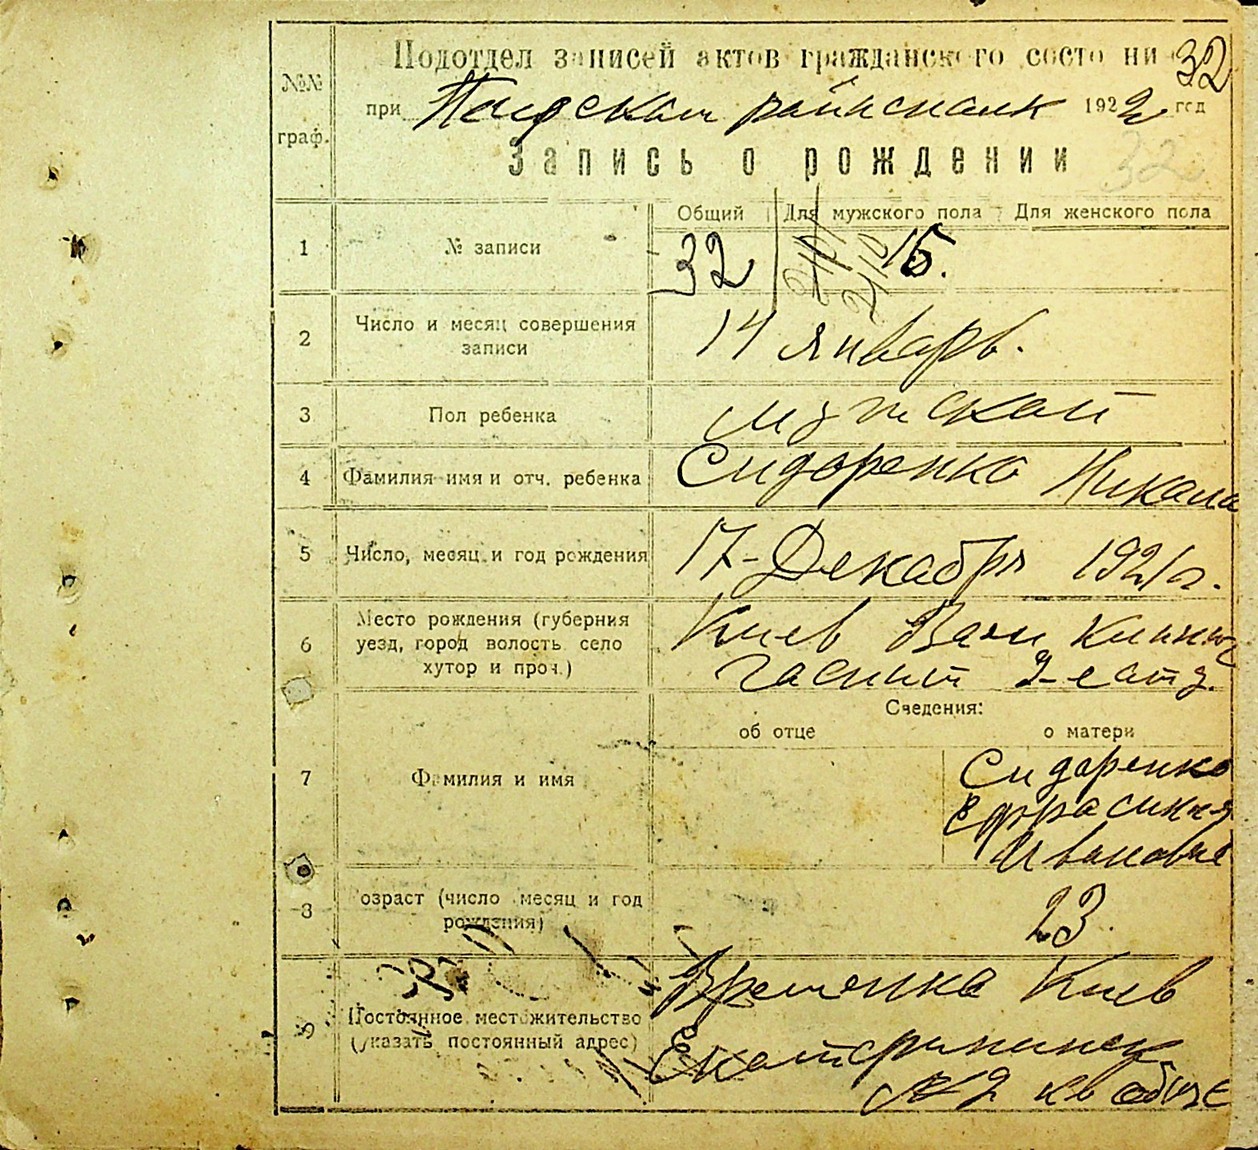 Подотдел записей актов гражданского состо ни
32
№№ граф.
при 1922 год
Запись о рождении
32
Общий Для мужского пола Для женского пола
1 № записи 32 15.
2 Число и месяц совершения
записи
14 январь.
3 Пол ребенка мужской
4 Фамилия имя и отч. ребенка Сидоренко Никола
5 Число, месяц и год рождения 17-Декабря 1921 г.
6 Место рождения (губерния
уезд, город волость село
хутор и проч.)
Киев
Сведения:
об отце о матери
7 Фамилия и имя
Сидоренко
Ефросиния
Ивановна
8 озраст (число месяц и год
рождения)
23
9 Постоянное местожительство
(указать постоянный адрес)
Временно Киев
Екатерининск
№2